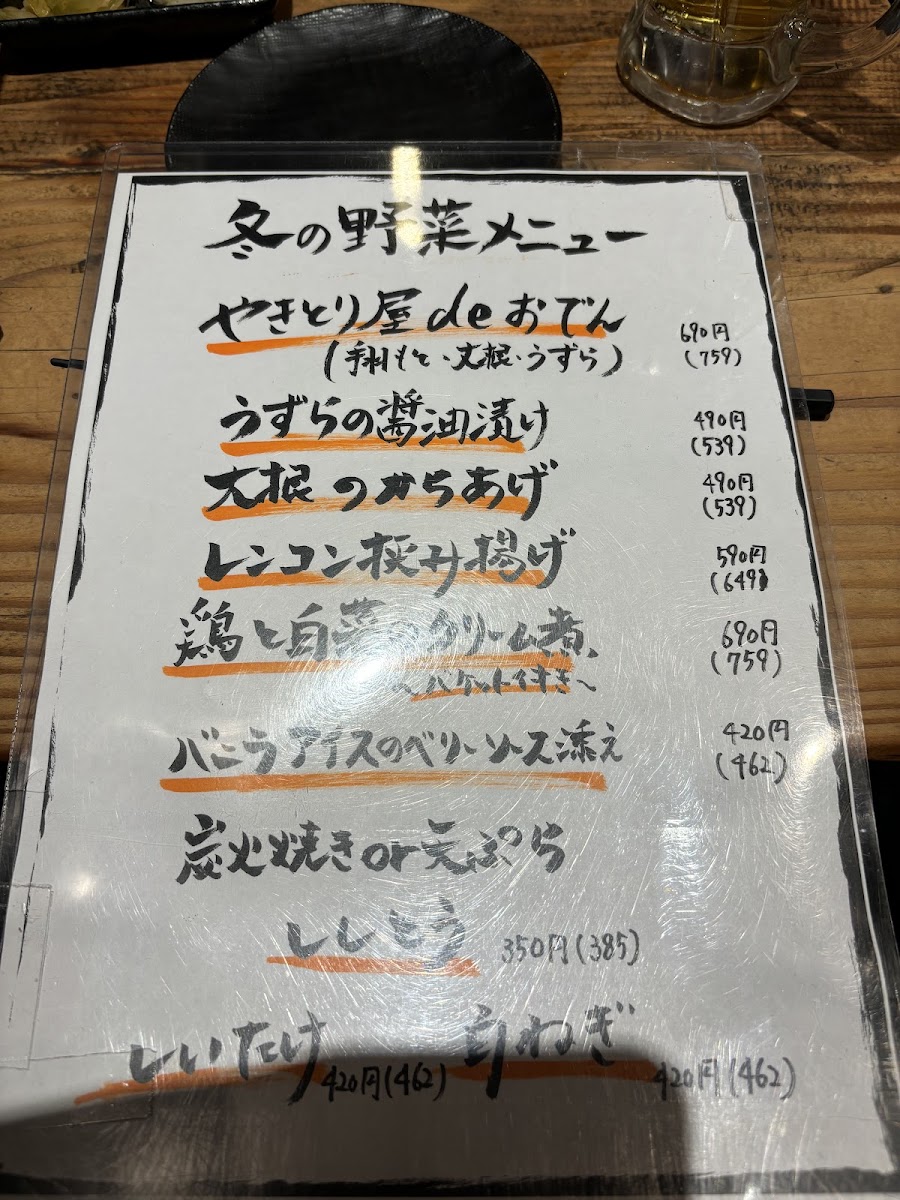 冬の野菜メニュー
やきとり屋deおでん 690円
(手羽もと・大根・うずら) (759)
うずらの醤油漬け 490円
(539)
大根のからあげ 490円
(539)
レンコン挟み揚げ 590円
(649)
鶏と白菜のクリーム煮 690円
～バケット付き～ (759)
バニラアイスのベリーソース添え 420円
(462)
炭火焼きor天ぷら
ししとう 350円(385)
しいたけ 420円(462) 白ねぎ 420円(462)